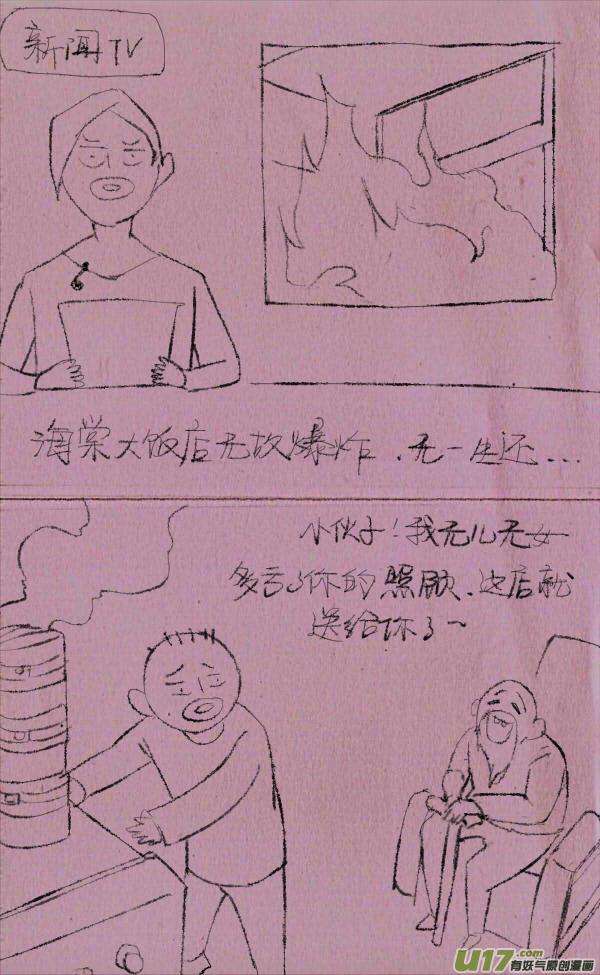 新闻TV
海棠大饭店无故爆炸.无一生还...
小伙子！我无儿无女
多亏了你的照顾.这店就
送给你了~
U17.com
有妖气原创漫画